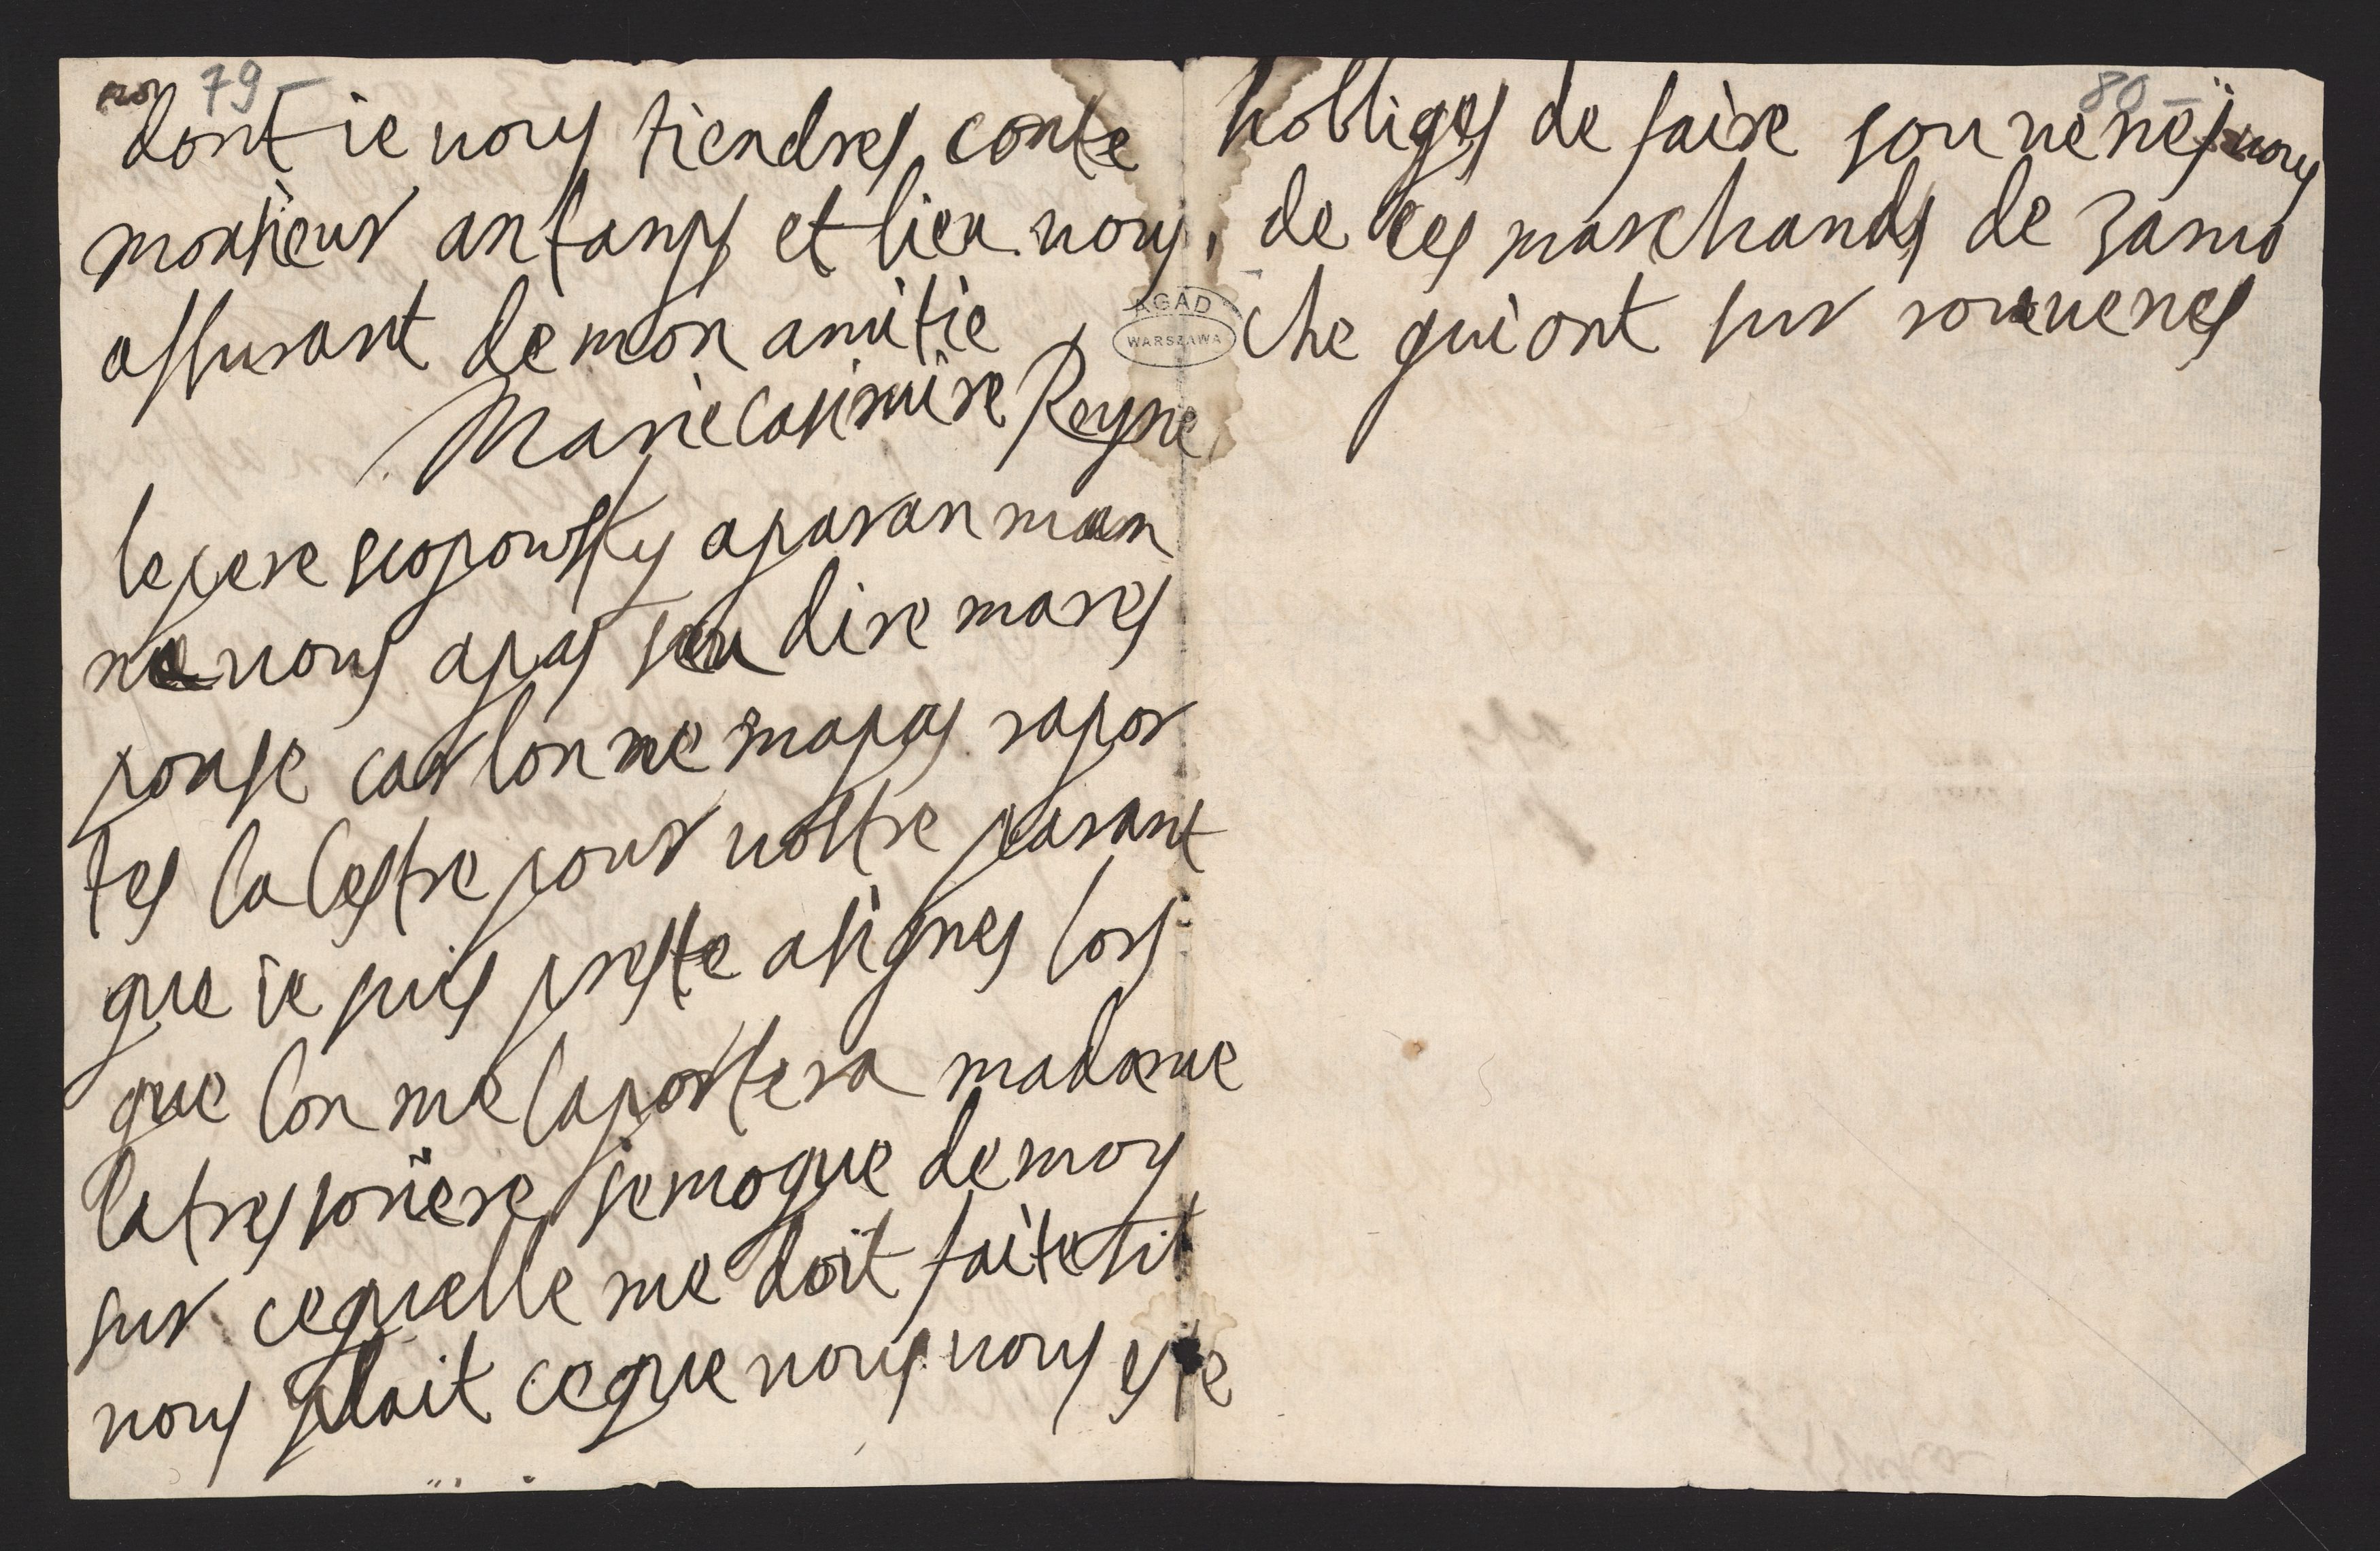 79-
dont ie vous tiendres conte
monsieur an tamps et lieu vous
assurant de mon amitie
Marie Casimire Reyne
le pere scopowsky aparan mam
ne vous a pas seu dire ma res
ponse car lon ne ma pas rapor
tes la lestre pour vostre paran
que ie suis preste a signes lors
que lon me laportera madame
la tres soriere se moque de moy
sur ce quelle me doit faite sil
vous plait ce que vous vous este
80-
hobliges de faire souvenes vous
de ces marchands de zamo
che qui ont sur
AGAD
WARSZAWA